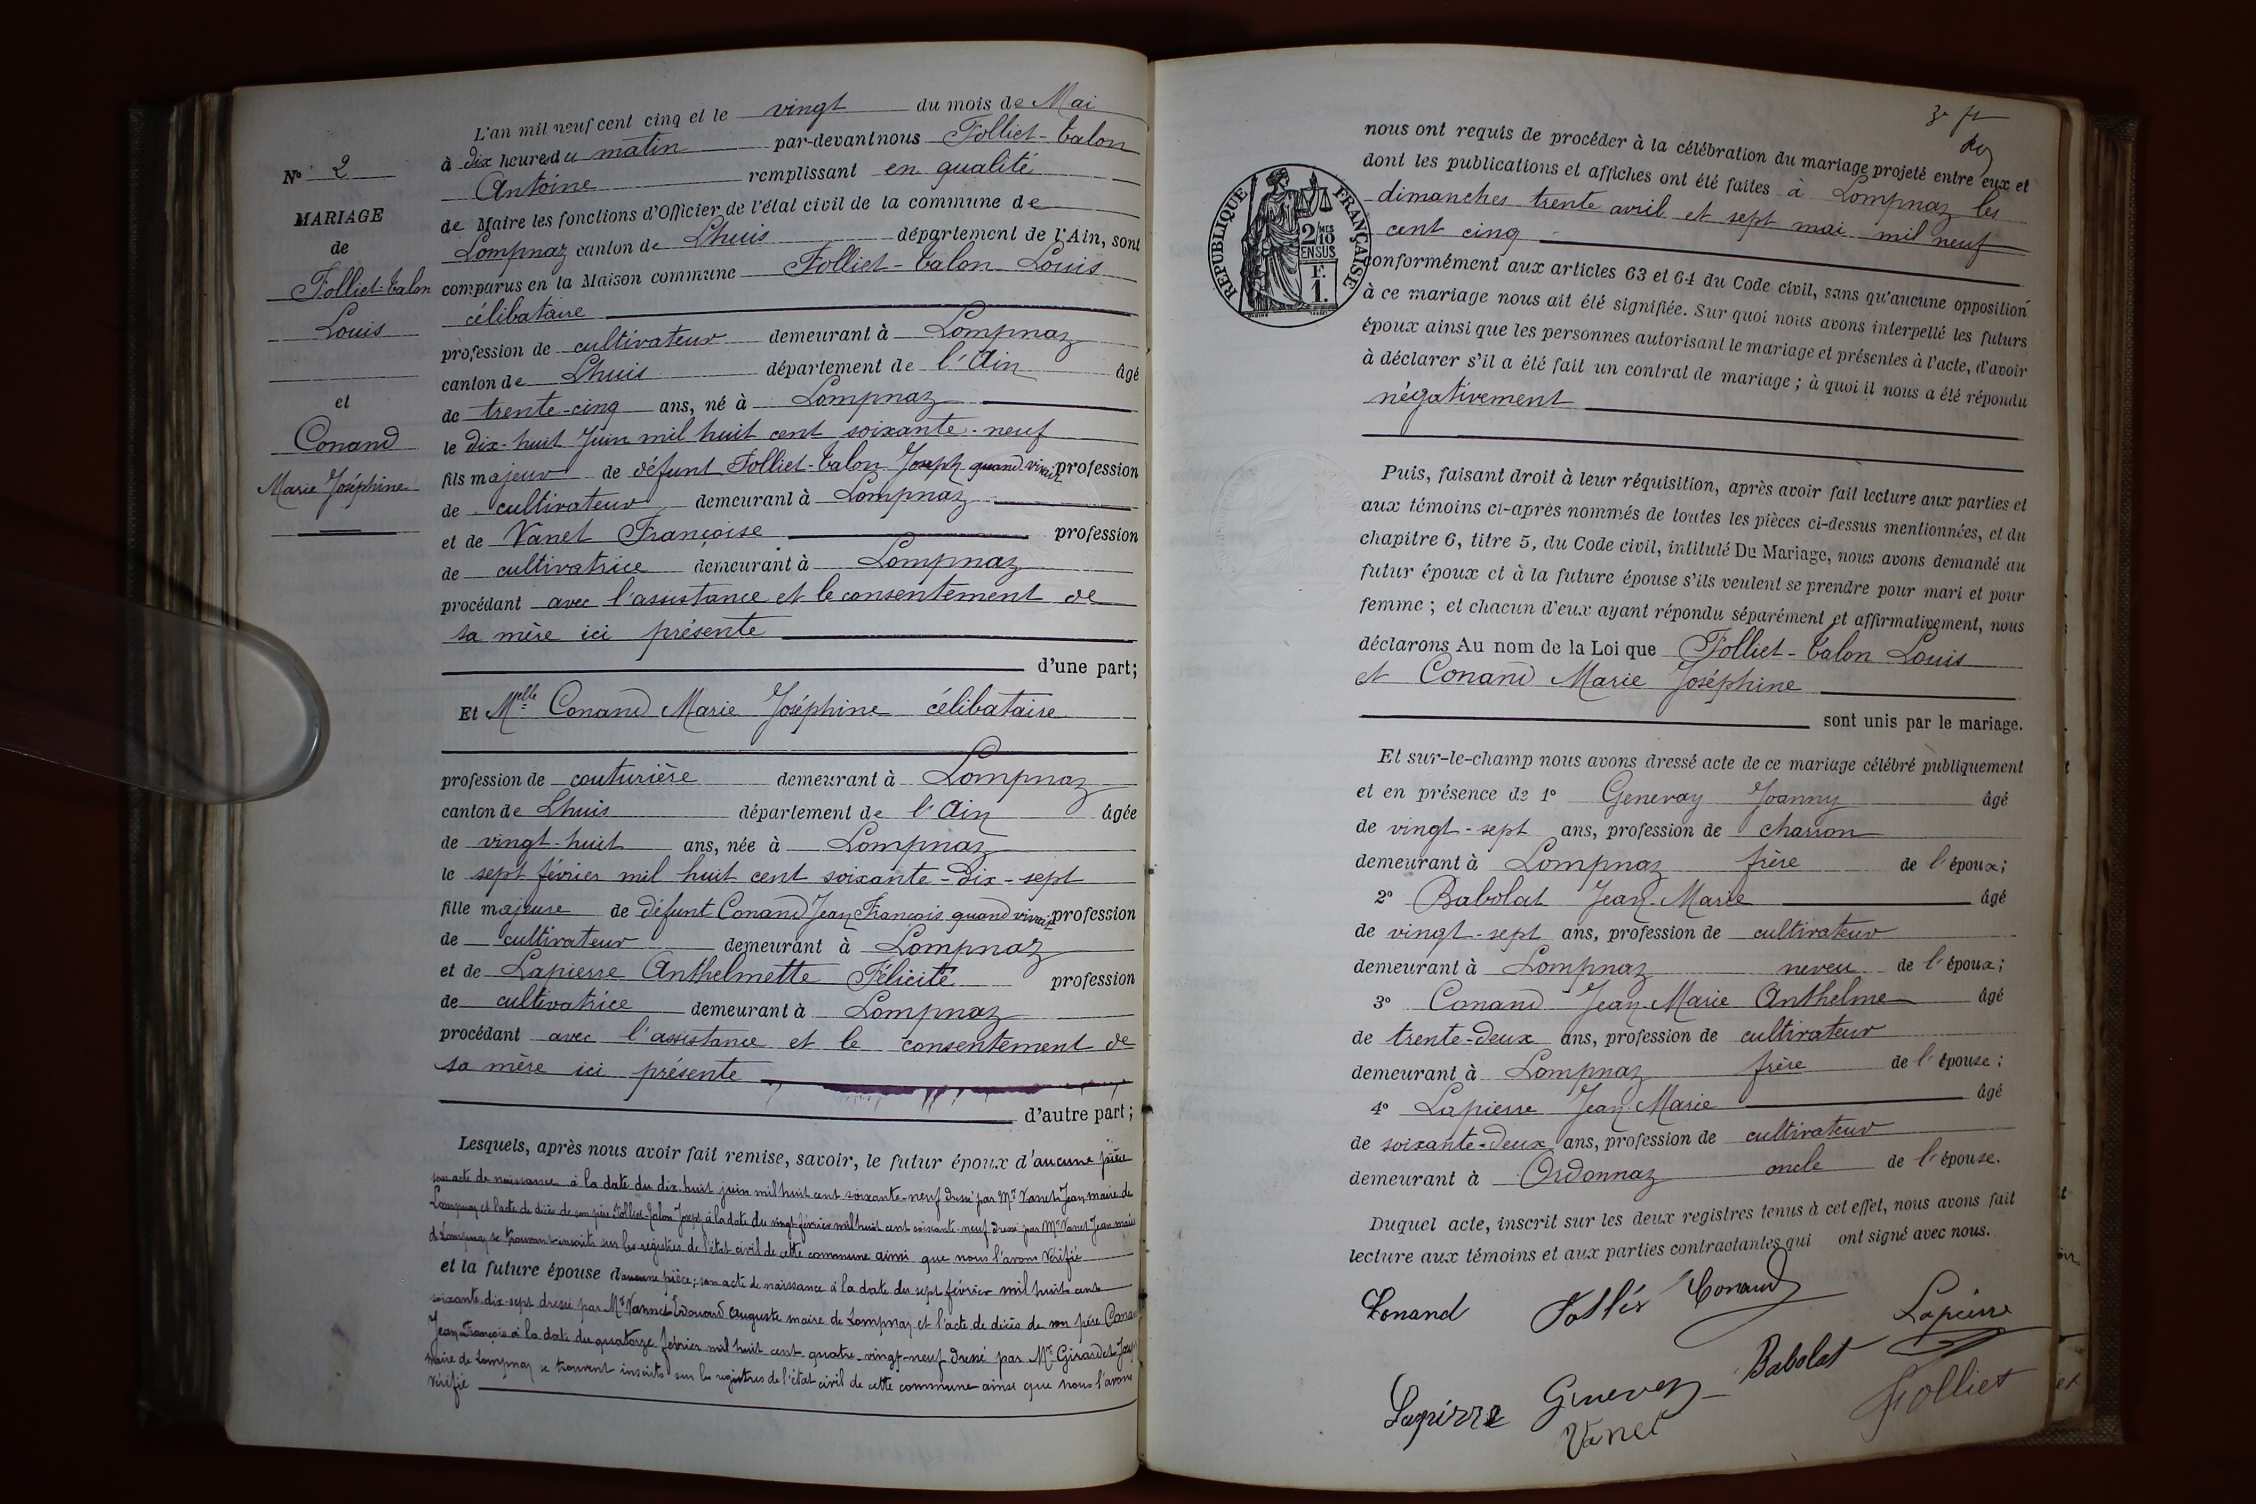 N° 2
MARIAGE
de
Folliet-Talon
Louis
et
Conand
Marie Joséphine
L'an mil neuf cent cinq et le vingt du mois de Mai
à dix heures du matin par-devant nous Folliet-Talon
Antoine remplissant en qualité
de Maire les fonctions d'Officier de l'état civil de la commune de
Lompnaz canton de Lhuis département de l'Ain, sont
comparus en la Maison commune Folliet-Talon Louis
célibataire
profession de cultivateur demeurant à Lompnaz
canton de Lhuis département de l'Ain âgé
de trente-cinq ans, né à Lompnaz
le dix-huit Juin mil huit cent soixante-neuf
fils majeur de défunt Folliet-Talon Joseph quand vivait profession
de cultivateur demeurant à Lompnaz
et de Vanet Françoise profession
de cultivatrice demeurant à Lompnaz
procédant avec l'assistance et le consentement de
sa mère ici présente
d'une part;
Et Melle Conand Marie Joséphine célibataire
profession de couturière demeurant à Lompnaz
canton de Lhuis département de l'Ain âgée
de vingt-huit ans, née à Lompnaz
le sept février mil huit cent soixante-dix-sept
fille majeure de défunt Conand Jean François quand vivait profession
de cultivateur demeurant à Lompnaz
et de Lapierre Anthelmette Félicité profession
de cultivatrice demeurant à Lompnaz
procédant avec l'assistance et le consentement de
sa mère ici présente
d'autre part;
Lesquels, après nous avoir fait remise, savoir, le futur époux d'aucune pièce
son acte de naissance à la date du dix-huit juin mil huit cent soixante-neuf dressé par Mr Vanet Jean maire de
Lompnaz et l'acte de décès de son père Folliet-Talon Joseph à la date du vingt février mil huit cent soixante-neuf dressé par Mr Vanet Jean maire
de Lompnaz se trouvant inscrits sur les registres de l'état civil de cette commune ainsi que nous l'avons vérifié
et la future épouse d'aucune pièce; son acte de naissance à la date du sept février mil huit cent
soixante-dix-sept dressé par Mr Vannet Edouard Auguste maire de Lompnaz et l'acte de décès de son père Conand
Jean François à la date du quatorze février mil huit cent quatre-vingt-neuf dressé par Mr Girardet Joseph
maire de Lompnaz se trouvent inscrits sur les registres de l'état civil de cette commune ainsi que nous l'avons
vérifié
RÉPUBLIQUE FRANÇAISE
2/10 MES
EN SUS
F.
1.
nous ont requis de procéder à la célébration du mariage projeté entre eux et
dont les publications et affiches ont été faites à Lompnaz les
dimanches trente avril et sept mai mil neuf
cent cinq
conformément aux articles 63 et 64 du Code civil, sans qu'aucune opposition
à ce mariage nous ait été signifiée. Sur quoi nous avons interpellé les futurs
époux ainsi que les personnes autorisant le mariage et présentes à l'acte, d'avoir
à déclarer s'il a été fait un contrat de mariage; à quoi il nous a été répondu
négativement
Puis, faisant droit à leur réquisition, après avoir fait lecture aux parties et
aux témoins ci-après nommés de toutes les pièces ci-dessus mentionnées, et du
chapitre 6, titre 5, du Code civil, intitulé Du Mariage, nous avons demandé au
futur époux et à la future épouse s'ils veulent se prendre pour mari et pour
femme; et chacun d'eux ayant répondu séparément et affirmativement, nous
déclarons Au nom de la Loi que Folliet-Talon Louis
et Conand Marie Joséphine
sont unis par le mariage.
Et sur-le-champ nous avons dressé acte de ce mariage célébré publiquement
et en présence de 1° Genevay Joanny âgé
de vingt-sept ans, profession de charron
demeurant à Lompnaz frère de l'époux;
2° Babolat Jean-Marie âgé
de vingt-sept ans, profession de cultivateur
demeurant à Lompnaz neveu de l'époux;
3° Conand Jean-Marie Anthelme âgé
de trente-deux ans, profession de cultivateur
demeurant à Lompnaz frère de l'épouse;
4° Lapierre Jean-Marie âgé
de soixante-deux ans, profession de cultivateur
demeurant à Ordonnaz oncle de l'épouse.
Duquel acte, inscrit sur les deux registres tenus à cet effet, nous avons fait
lecture aux témoins et aux parties contractantes qui ont signé avec nous.
Conand Conand Lapierre
Lapierre Genevey Babolat Folliet
Vanet